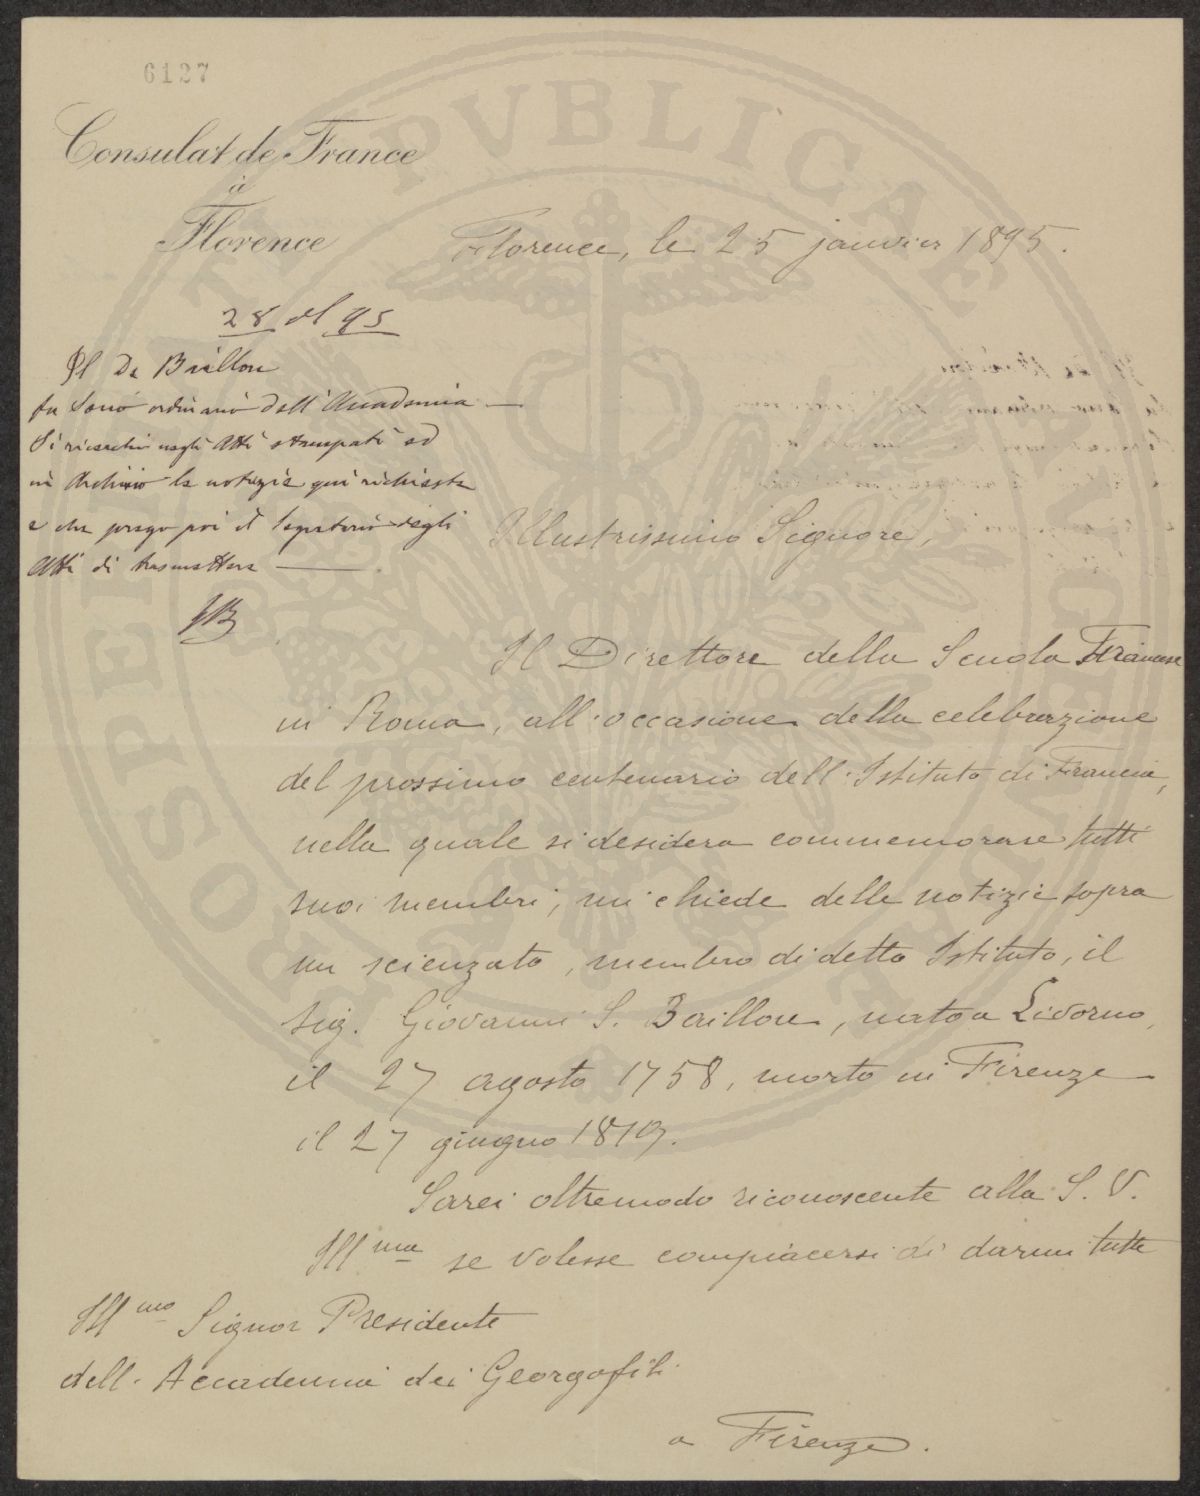 6127
Consulat de France
à
Florence
Florence, le 25 janvier 1895.
28 del 95
Il De Baillou
fu Socio ordinario dell'Accademia —
Si ricerchi negli Atti stampati ed
in Archivio le notizie qui richieste
e che prego poi il Segretario degli
Atti di trasmettere —
Illustrissimo Signore,
Il Direttore della Scuola Francese
in Roma, all'occasione della celebrazione
del prossimo centenario dell'Istituto di Francia,
nella quale si desidera commemorare tutti
suoi membri, mi chiede delle notizie sopra
un scienzato, membro di detto Istituto, il
Sig. Giovanni S. Baillou, nato a Livorno,
il 27 agosto 1758, morto in Firenze
il 27 giugno 1819.
Sarei oltremodo riconoscente alla S. V.
Ill ma se volesse compiacersi di darmi tutte
Ill mo Signor Presidente
dell'Accademia dei Georgofili
a Firenze.
PROSPERITATI PVBLICAE AVGENDAE